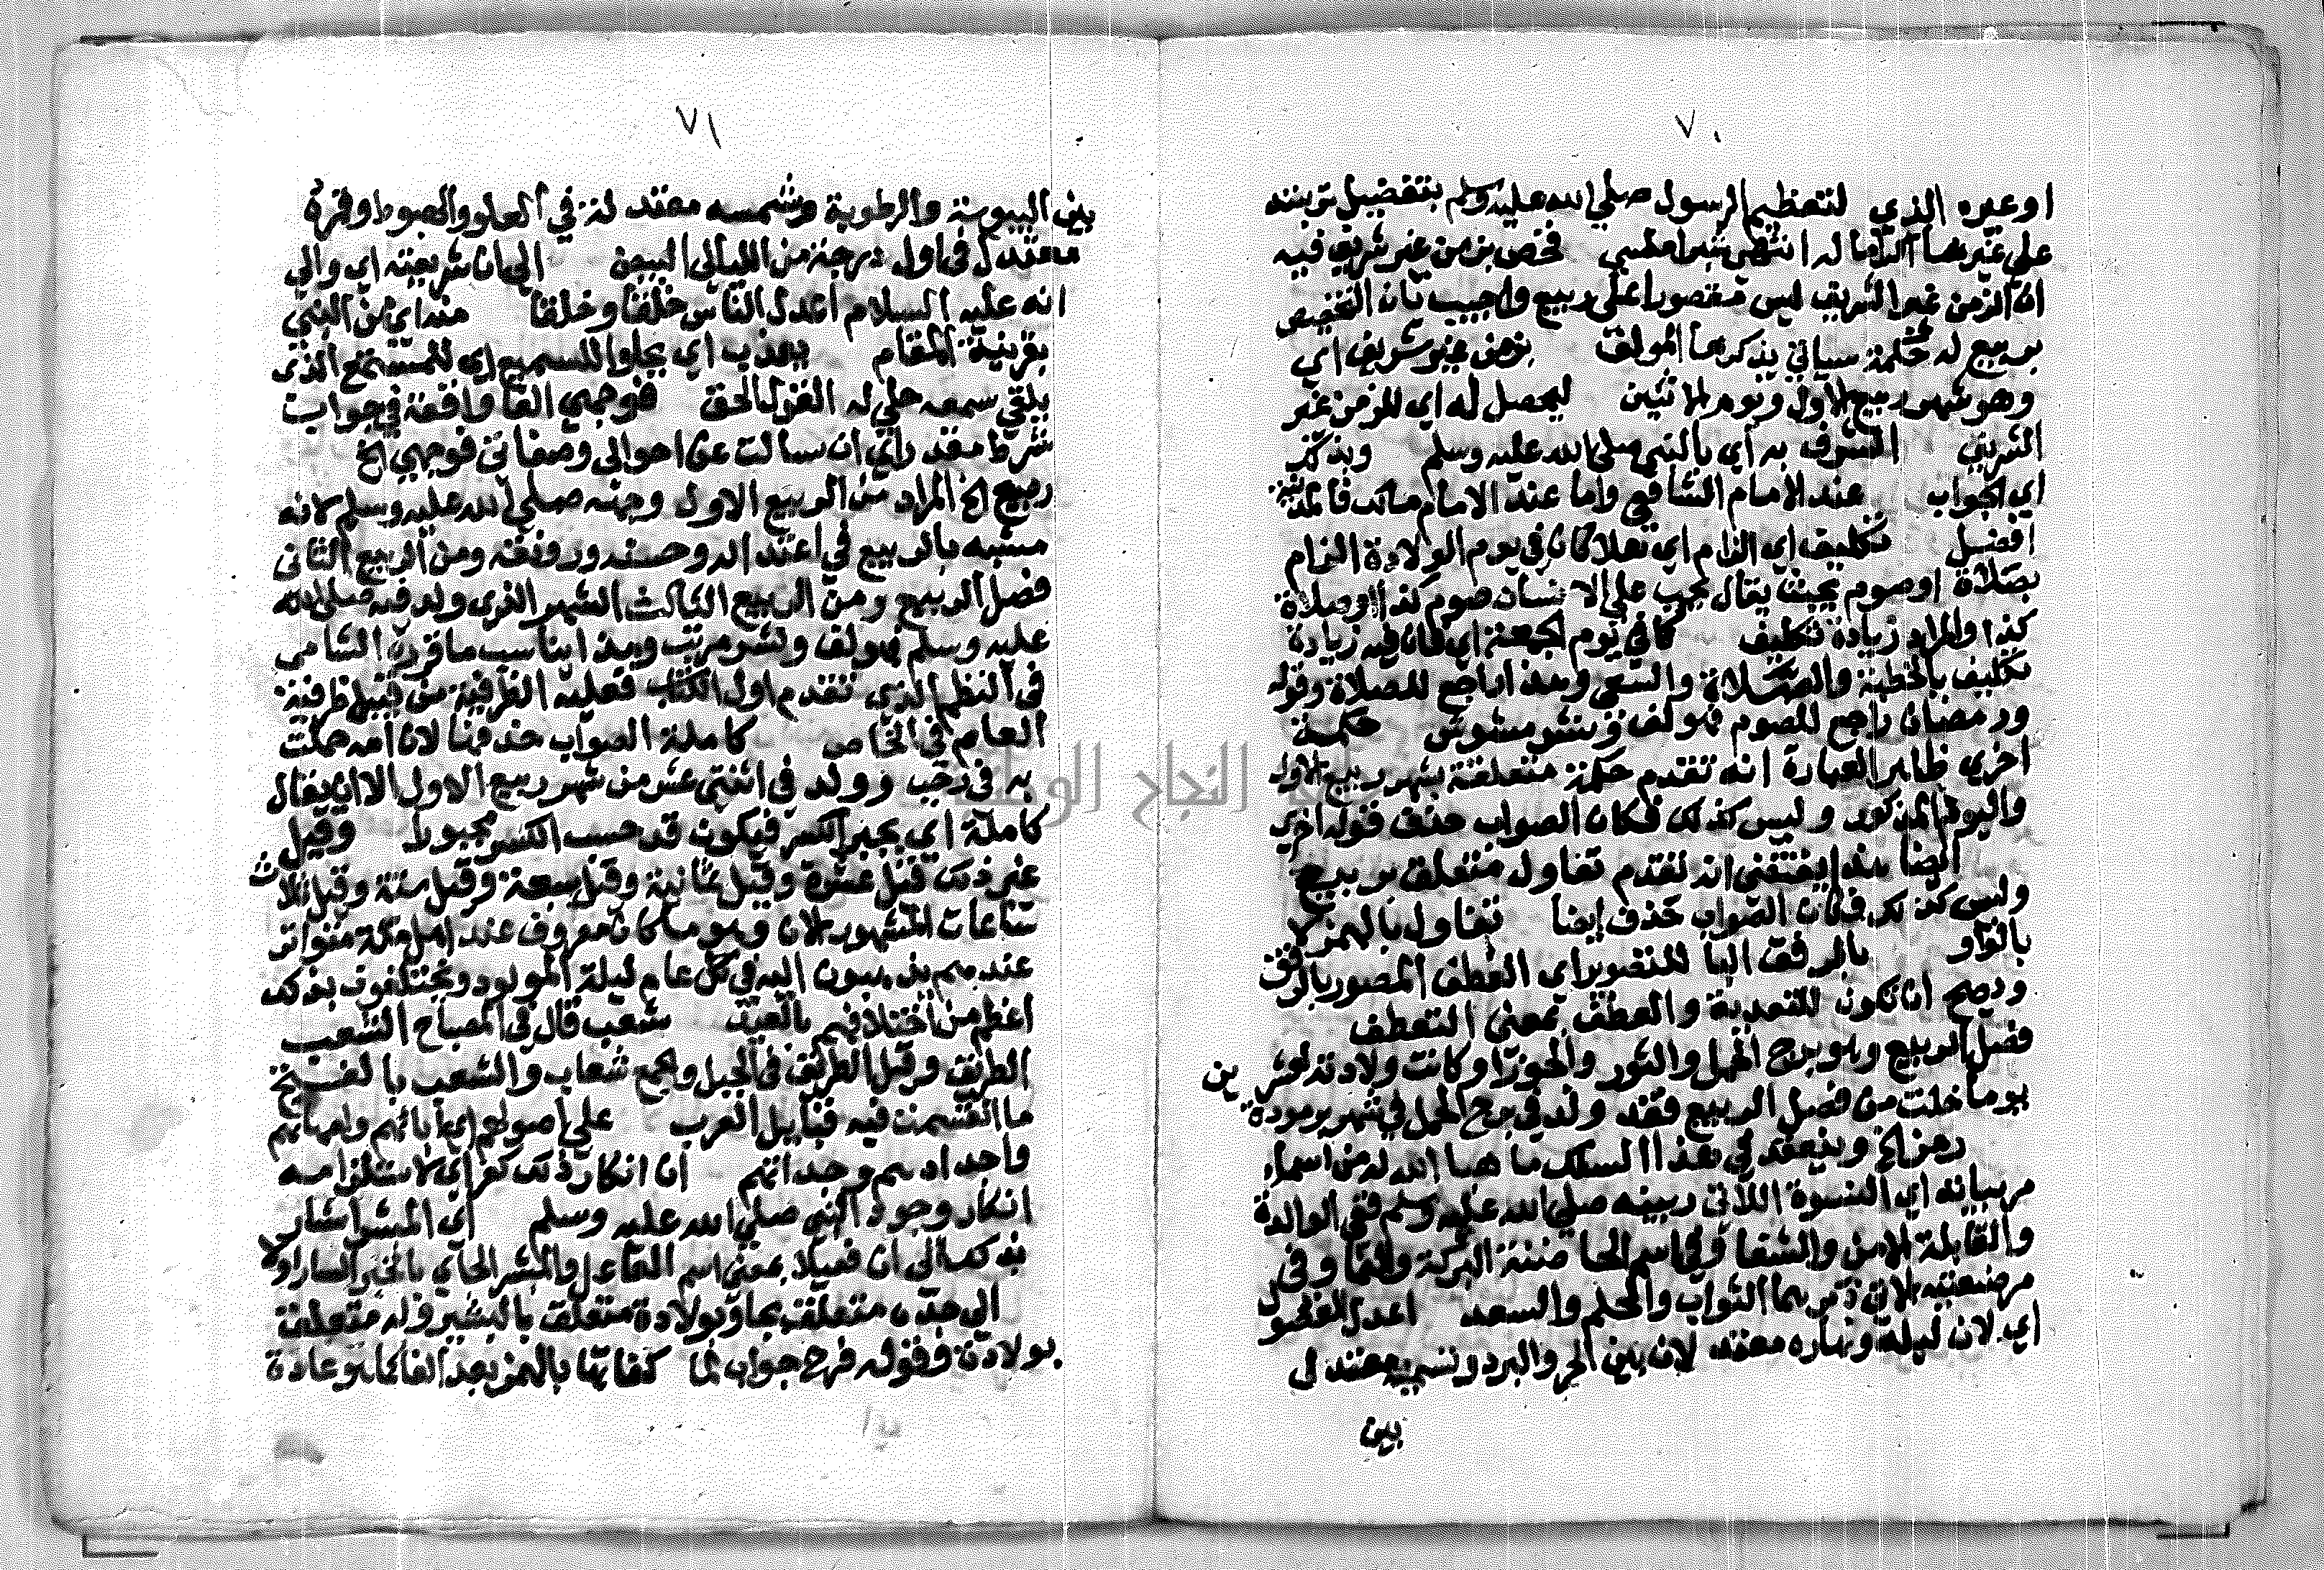 ٧٠
او غيره الذي لتعظيم الرسول صلي الله عليه وسلم بتفضيل تربته
علي غيرها
ان الزمن غير الشريف ليس مقصورا علي ربيع واجيب بان التخصيص
بربيع له حكمة سياتي يذكرها المولف بزمن غير شريف اي
وهو شهر ربيع الاول ويوم الاثنين ليحصل له اي للزمن غير
الشريف الشرف به اي بالنبي صلي الله عليه وسلم وبذلك
اي الجواب عند الامام الشافعي واما عند الامام مالك فالمدينة
افضل تكليف اي الزام اي فعلا كان في يوم الولادة الزام
بصلاة او صوم بحيث يقال يجب علي الانسان صوم كذا او صلاة
كذا والمراد زيادة تكليف كما في يوم الجمعة اي فان فيه زيادة
تكليف بالخطبة والصلاة والسعي وهذا راجع للصلاة وقوله
ورمضان راجع للصوم فهو لف ونشر مشوش حكمة
اخري ظاهر العبارة انه تقدم حكمة متعلقة بشهر ربيع الاول
واليوم المذكور وليس كذلك فكان الصواب حذف قوله اخري
ايضا هذا يقتضي انه تقدم تفاول متعلق بربيع
وليس كذلك فكان الصواب حذف ايضا تفاول بالهمز لا
بالواو بالرفق البا للتصوير اي العطف المصور بالرفق
ويصح ان تكون للتعدية والعطف بمعني التعطف
فصل الربيع وهو برج الحمل والثور والجوزا وكانت ولادته لعشرين
يوما خلت من فصل الربيع فقد ولد في برج الحمل في شهر برمودة
رمز الخ وينعقد في هذا السلك ما هيا الله له من اسماء
مربياته اي النسوة اللاتي ربينه صلي الله عليه وسلم ففي الوالدة
والقابلة الامن والشفا وفي اسم الحاضنة البركة والنما وفي
مرضعتيه الاتي ذكرهما الثواب والحلم والسعد اعدل الفصول
اي لان ليله ونهاره معتدلان بين الحر والبرد ونسيمه معتدل
بين
٧١
بين اليبوسة والرطوبة وشمسه معتدلة في العلو والهبوط وقمره
معتدل في اول درجة من الليالي البيض الي ان شريعته اي والي
انه عليه السلام اعدل الناس خلقا وخلقا منه اي من النبي
بقرينة المقام يعذب اي يحلو للسميع اي للمستمع الذي
يلقي سمعه حلي له القول الحق فوجهي الفا واقعة في جواب
شرط مقدر اي ان سالت عن احوالي وصفاتي فوجهي الخ
ربيع الخ المراد من الربيع الاول وجهه صلي الله عليه وسلم لانه
مشبه بالربيع في اعتداله وحسنه ورونقه ومن الربيع الثاني
فصل الربيع ومن الربيع الثالث الشهر الذي ولد فيه صلي الله
عليه وسلم فهو لف ونشر مرتب وهذا يناسب ما قرره الشامي
في النظم الذي تقدم اول الكتاب فعليه الظرفية من قبيل ظرفية
العام في الخاص كاملة الصواب حذفها لان امه حملت
به في رجب وولد في اثنتي عشر من شهر ربيع الاول الا ان يقال
كاملة اي بجبر الكسر فيكون قد حسب الكسر مجبورا وقيل
غير ذلك قيل عشرة وقيل ثمانية وقيل سبعة وقيل ستة وقيل ثلاث
ساعات المشهور الان وهو مكان معروف عند اهل مكة متواتر
عندهم يذهبون اليه في كل عام ليلة المولود ويحتفلون بذلك
اعظم من احتفالهم بالعيد شعب قال في المصباح الشعب
الطريق وقيل الطريق في الجبل والجمع شعاب والشعب بالفتح
ما انقسمت فيه قبايل العرب علي اصولهم اي ابائهم وامهاتهم
واجدادهم وجداتهم ان انكار ذلك كفر اي لاستلزامه
انكار وجود النبي صلي الله عليه وسلم اي المبشر اشار
بذلك الي ان فعيلا بمعني اسم الفاعل والمبشر الجاي بالخبر السار اولا
الي جده متعلق بجا وبولادة متعلق بالبشير وله متعلق
بولادة وقوله فرح جواب لما كفايتا بالهمز بعد الفا كما هو عادة